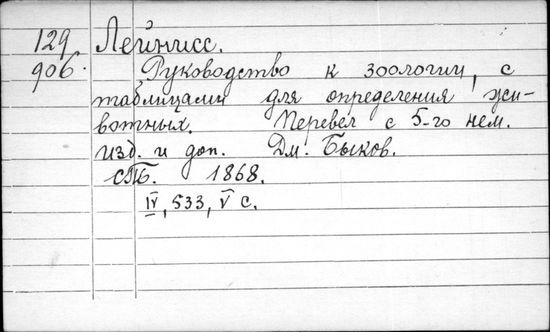 129 Лейнисс.
906. Руководство к зоологии, с
таблицами для определения жи-
вотных. Перевел с 5-го нем.
изд. и доп. Дм. Быков.
СПБ. 1868.
IV, 533, V с.